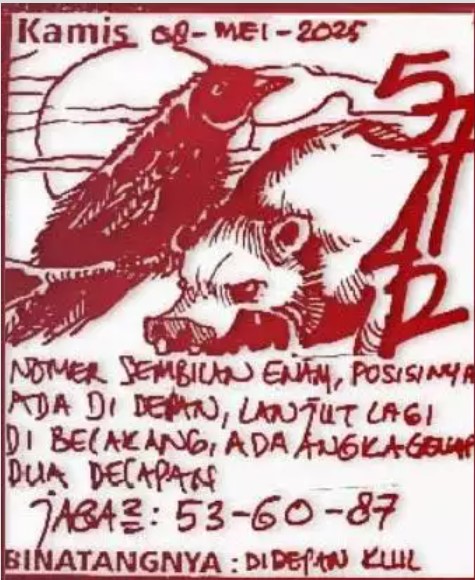 Kamis 08-MEI-2025
5
NOMER SEMBILAN ENAM, POSISINYA
ADA DI DEPAN, LANJUT LAGI
DI BELAKANG, ADA ANGKA GENAP
DUA DELAPAN
JAGA2: 53-60-87
BINATANGNYA: DIDEPAN KUUL